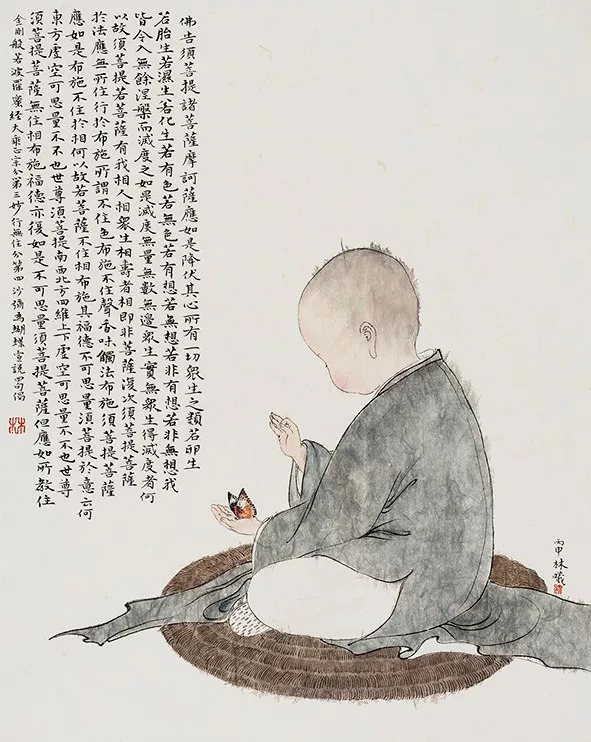 佛告須菩提諸菩薩摩訶薩應如是降伏其心所有一切眾生之類若卵生
若胎生若濕生若化生若有色若無色若有想若無想若非有想若非無想我
皆令入無餘涅槃而滅度之如是滅度無量無數無邊眾生實無眾生得滅度者何
以故須菩提若菩薩有我相人相眾生相壽者相即非菩薩復次須菩提菩薩
於法應無所住行於布施所謂不住色布施不住聲香味觸法布施須菩提菩薩
應如是布施不住於相何以故若菩薩不住相布施其福德不可思量須菩提於意云何
東方虛空可思量不不也世尊須菩提南西北方四維上下虛空可思量不不也世尊
須菩提菩薩無住相布施福德亦復如是不可思量須菩提菩薩但應如所教住
金剛般若波羅蜜經大乘正宗分第三妙行無住分第四沙彌為蝴蝶宣說四句偈
林
丙申林曦